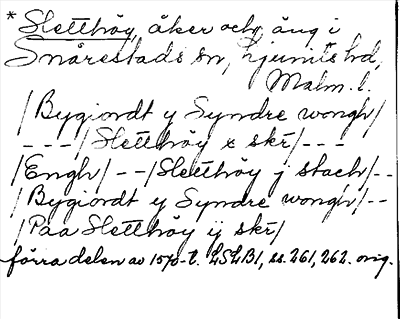 * Sletthöy, åker och äng i
Snårestads sn, Ljunits hd,
Malm. l.
/Bygiordt y Syndre wongh/
---/Sletthöy x skr/---
/Engh/--/Sletthöy j stach/--
/Bygiordt y Syndre wongh/--
/Paa Sletthöy ij skr/
förra delen av 1570-t. LSLB1, ss. 261, 262. orig.